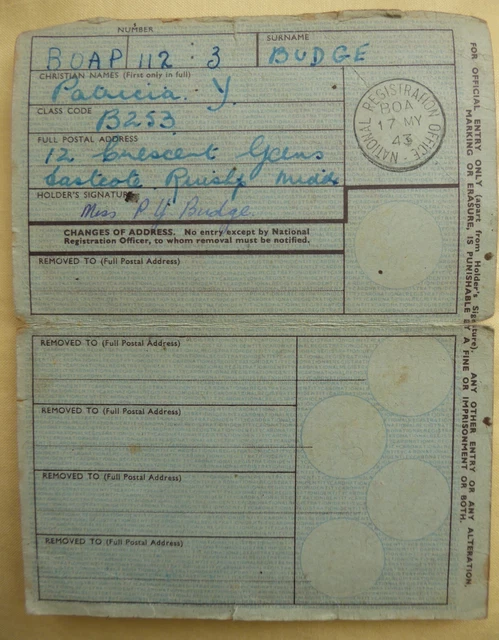 NUMBER
SURNAME
BOAP 112 : 3
BUDGE
CHRISTIAN NAMES (First only in full)
Patricia. Y.
CLASS CODE
B253
FULL POSTAL ADDRESS
12 Crescent Gdns
Eastcote, Ruislip Middx
HOLDER'S SIGNATURE
Miss P Y Budge.
NATIONAL REGISTRATION OFFICE
BOA
17 MY
43
CHANGES OF ADDRESS. No entry except by National
Registration Officer, to whom removal must be notified.
REMOVED TO (Full Postal Address)
REMOVED TO (Full Postal Address)
REMOVED TO (Full Postal Address)
REMOVED TO (Full Postal Address)
REMOVED TO (Full Postal Address)
FOR OFFICIAL ENTRY ONLY (apart from Holder's Signature). ANY OTHER ENTRY OR ANY ALTERATION,
MARKING OR ERASURE, IS PUNISHABLE BY A FINE OR IMPRISONMENT OR BOTH.